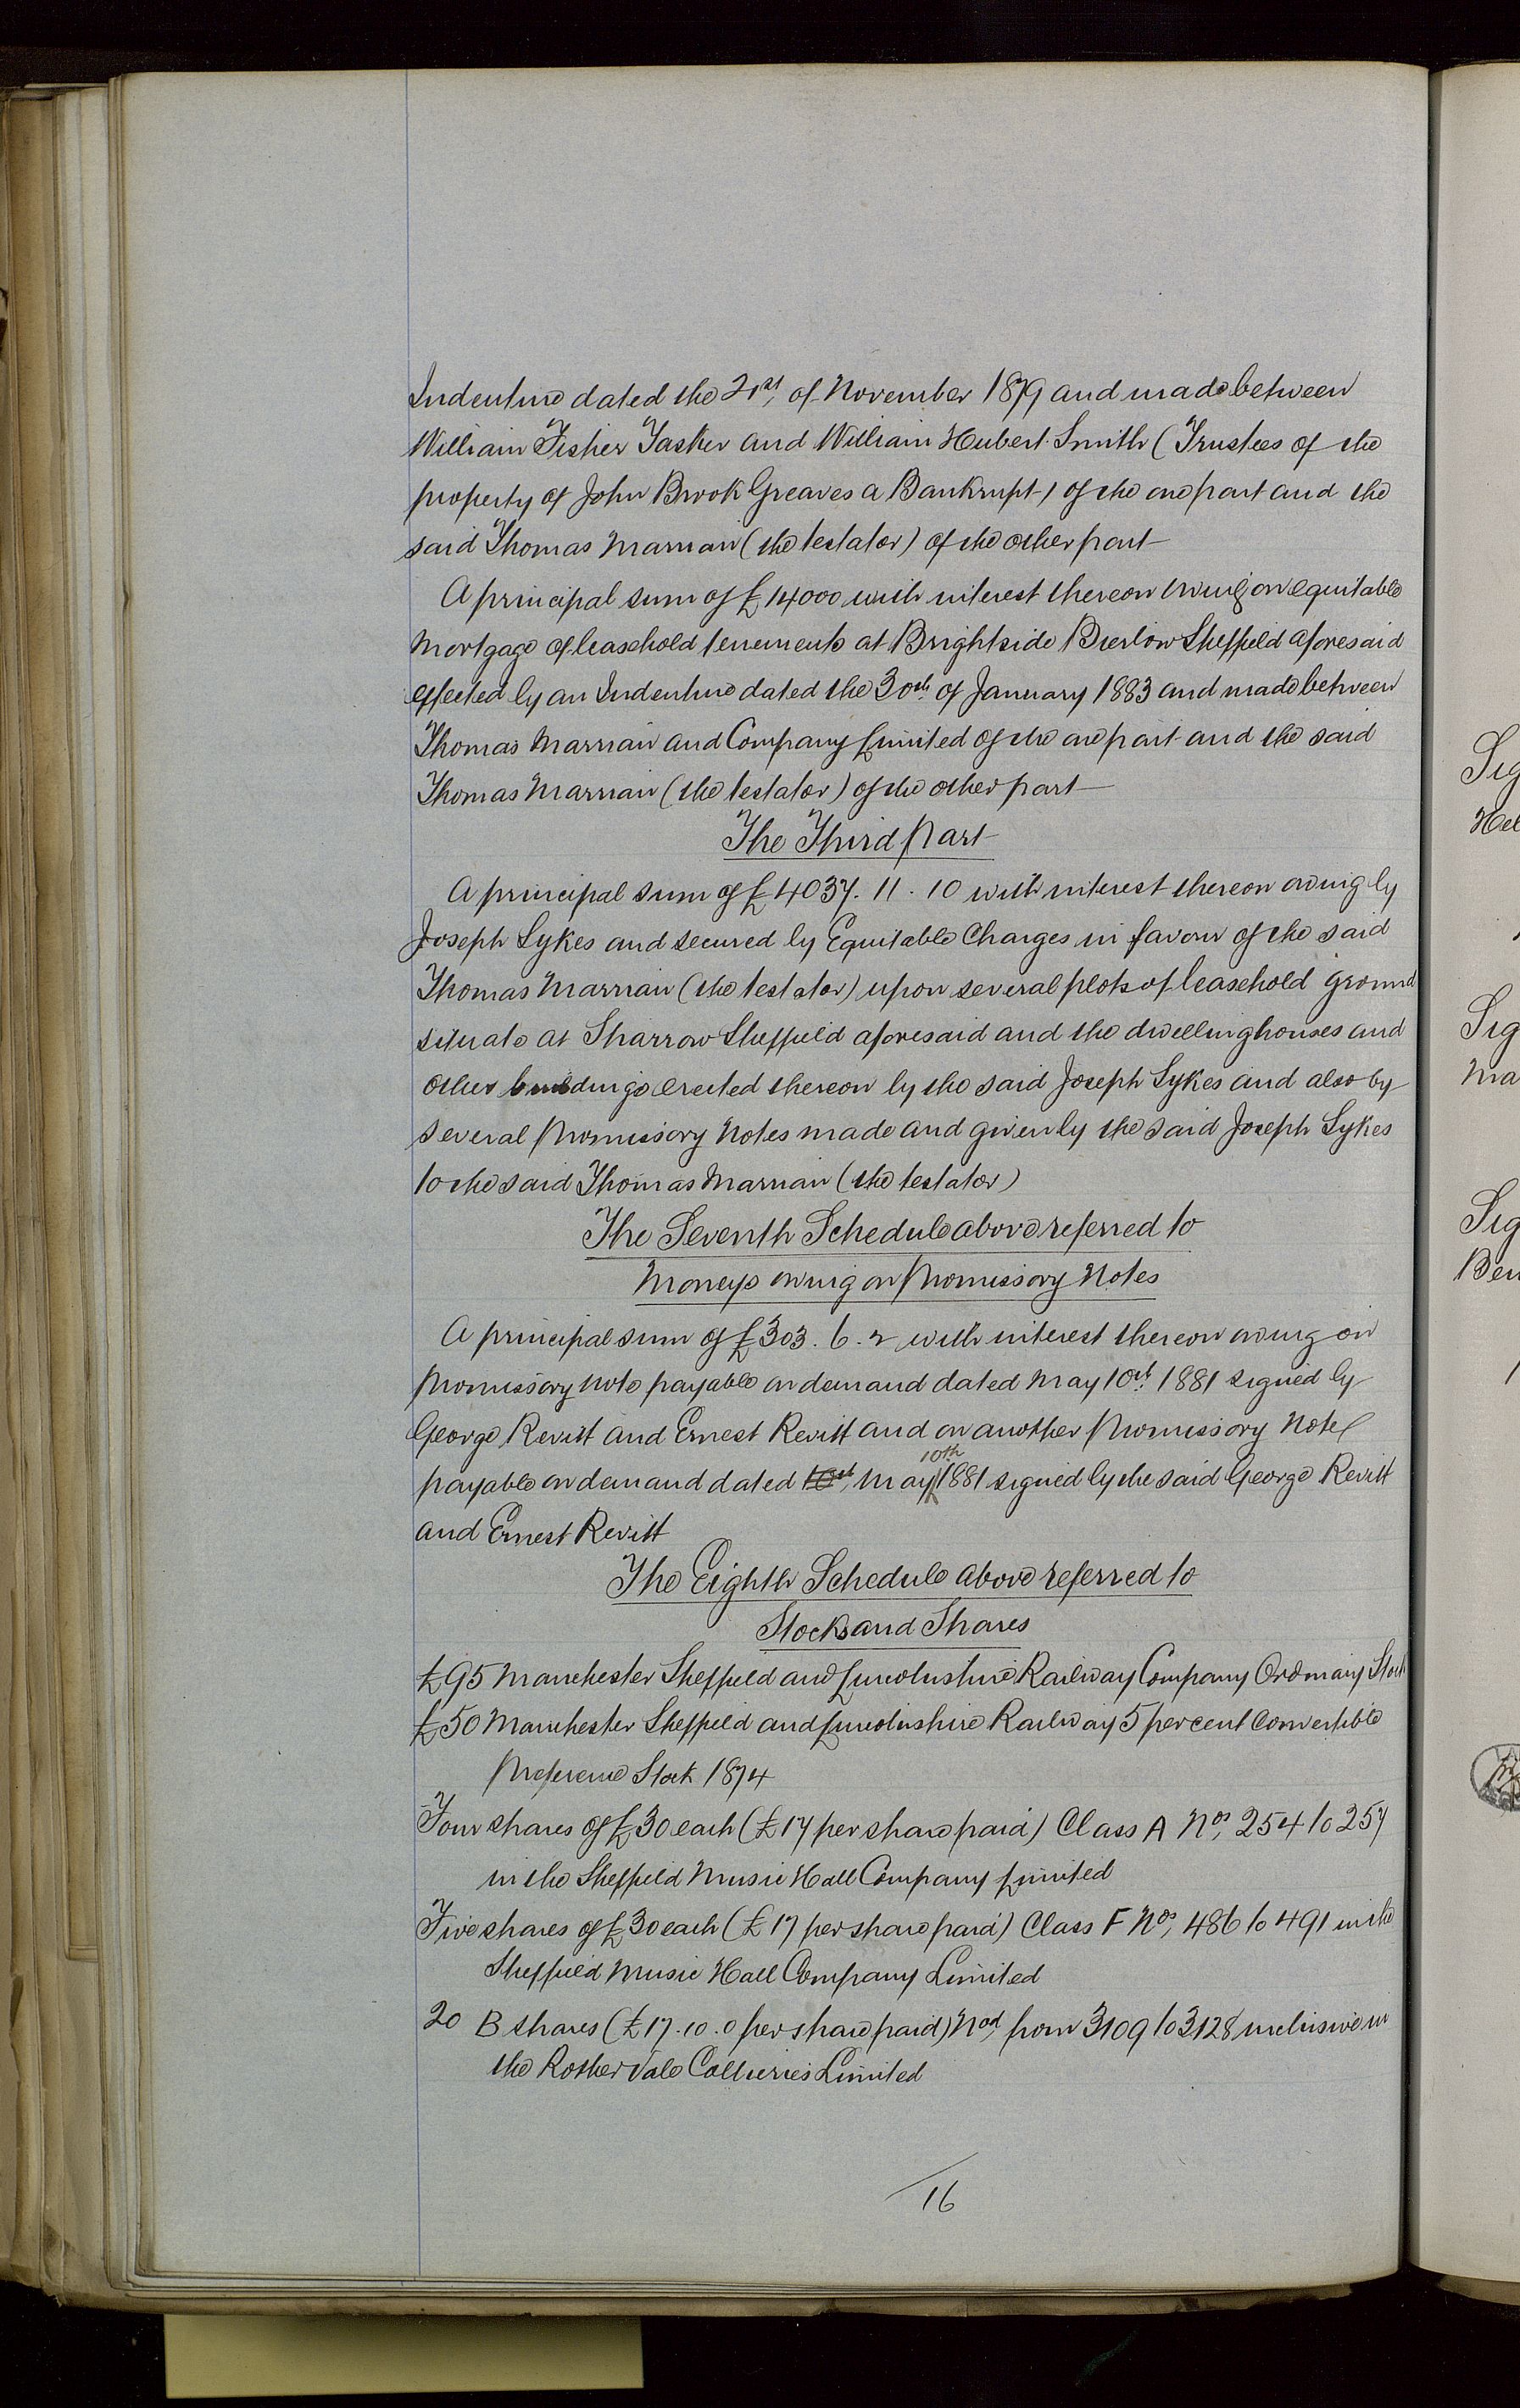 Indenture dated the 21st, of November 1879 and made between
William Fisher Tasker and William Hubert Smith (Trustees of the
property of John Brook Greaves a Bankrupt) of the one part and the
said Thomas Marrian (the testator) of the other part
A principal sum of £14000 with interest thereon owing on equitable
Mortgage of leasehold tenements at Brightside Bierlow Sheffield aforesaid
effected by an Indenture dated the 30th of January 1883 and made between
Thomas Marrian and Company Limited of the one part and the said
Thomas Marrian (the testator) of the other part
The Third Part
A principal sum of £4037. 11. 10 with interest thereon owing by
Joseph Sykes and secured by Equitable Charges in favour of the said
Thomas Marrian (the testator) upon several plots of leasehold ground
situate at Sharrow Sheffield aforesaid and the dwellinghouses and
other buildings erected thereon by the said Joseph Sykes and also by
several Promissory Notes made and given by the said Joseph Sykes
to the said Thomas Marrian (the testator)
The Seventh Schedule above referred to
Moneys owing on Promissory Notes
A principal sum of £303. 6. 2 with interest thereon owing on
Promissory note payable on demand dated May 10th 1881 signed by
George Revitt and Ernest Revitt and on another Promissory Note
payable on demand dated 10th, May 10th 1881 signed by the said George Revitt
and Ernest Revitt
The Eighth Schedule above referred to
Stocks and Shares
£95 Manchester Sheffield and Lincolnshire Railway Company Ordinary Stock
£50 Manchester Sheffield and Lincolnshire Railway 5 per cent Convertible
Preference Stock 1874
Four shares of £30 each (£17 per share paid) Class A Nos, 254 to 257
in the Sheffield Music Hall Company Limited
Five shares of £30 each (£17 per share paid) Class F Nos, 486 to 491 in the
Sheffield Music Hall Company Limited
20 B shares (£17. 10. 0 per share paid) Nos, from 3109 to 3128 inclusive in
the Rother Vale Collieries Limited
16
Sig
Hel
Sig
Ma
Sig
Ben